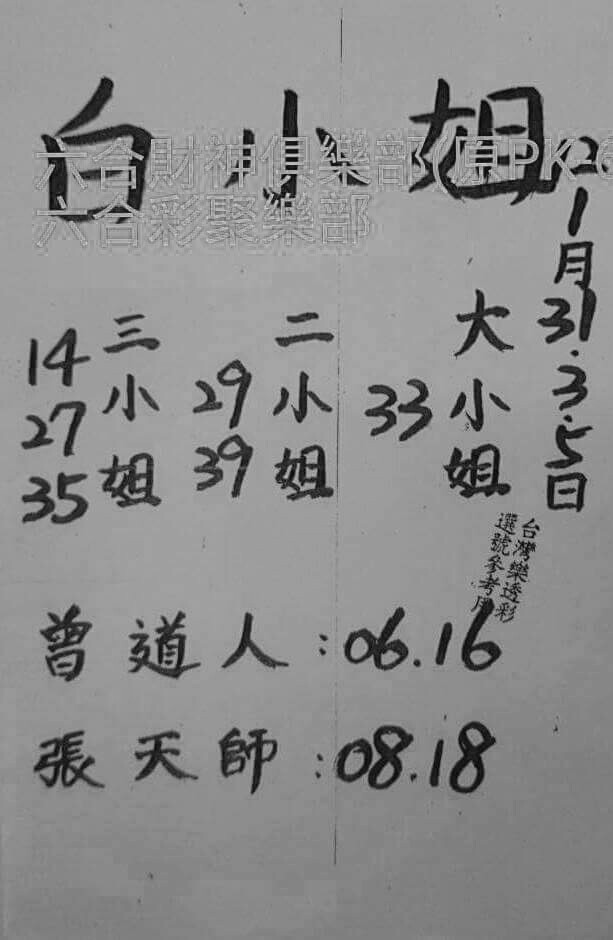 白小姐
六合財神俱樂部(原PK-6
六合彩聚樂部
12.1月31.3.5日
大小姐
33
二小姐
29
39
三小姐
14
27
35
台灣樂透彩
選號參考用
曾道人:06.16
張天師:08.18